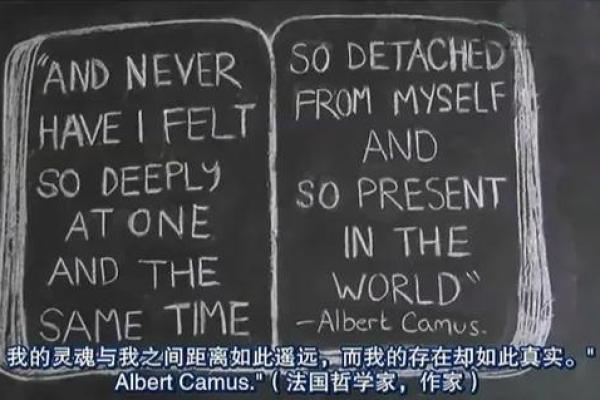 "AND NEVER
HAVE I FELT
SO DEEPLY
AT ONE
AND THE
SAME TIME
SO DETACHED
FROM MYSELF
AND
SO PRESENT
IN THE
WORLD"
-Albert Camus.
我的灵魂与我之间距离如此遥远，而我的存在却如此真实。"
Albert Camus."（法国哲学家，作家）